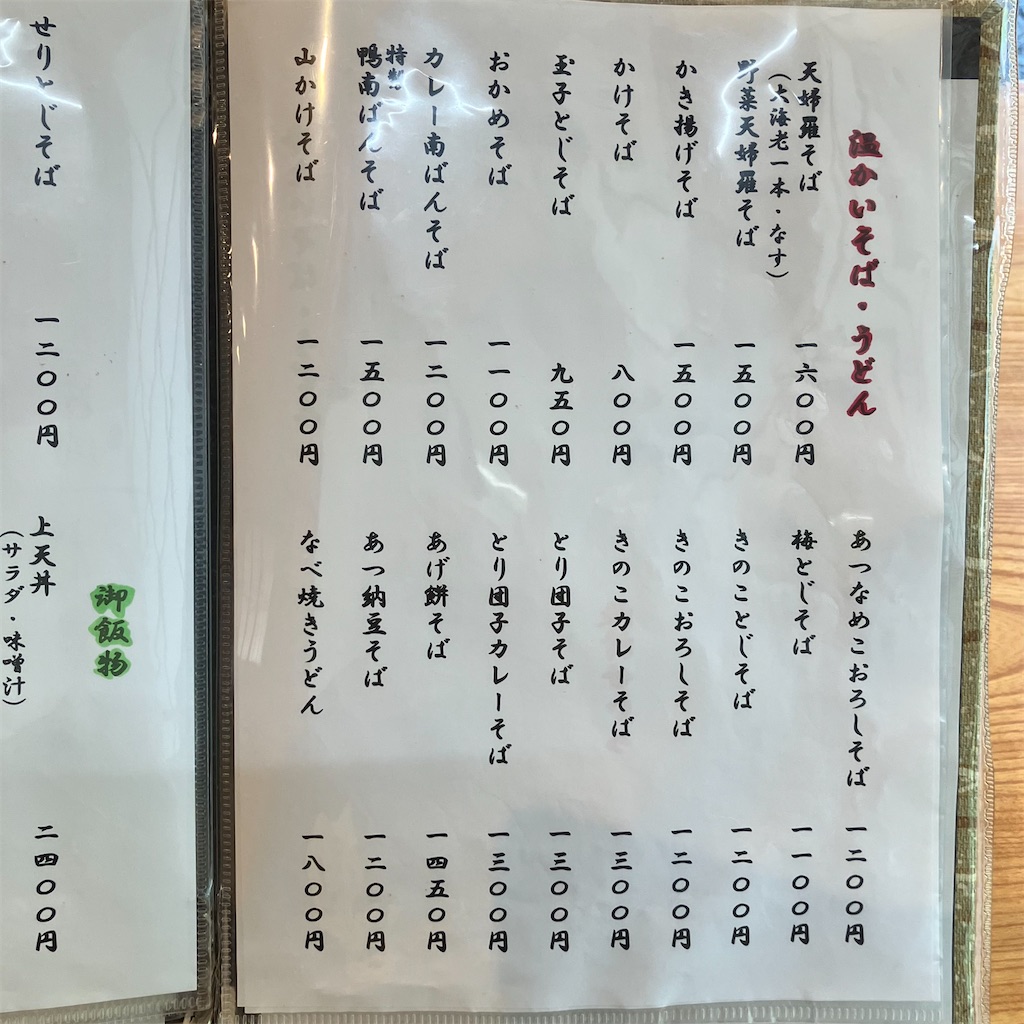 温かいそば・うどん
天婦羅そば
(大海老一本・なす)
一六〇〇円
野菜天婦羅そば
一五〇〇円
かき揚げそば
一五〇〇円
かけそば
八〇〇円
玉子とじそば
九五〇円
おかめそば
一一〇〇円
カレー南ばんそば
一二〇〇円
特製
鴨南ばんそば
一五〇〇円
山かけそば
一二〇〇円
あつなめこおろしそば
一二〇〇円
梅とじそば
一一〇〇円
きのことじそば
一二〇〇円
きのこおろしそば
一二〇〇円
きのこカレーそば
一三〇〇円
とり団子そば
一三〇〇円
とり団子カレーそば
一三〇〇円
あげ餅そば
一四五〇円
あつ納豆そば
一二〇〇円
なべ焼きうどん
一八〇〇円
せりとじそば
一二〇〇円
御飯物
上天丼
(サラダ・味噌汁)
二四〇〇円